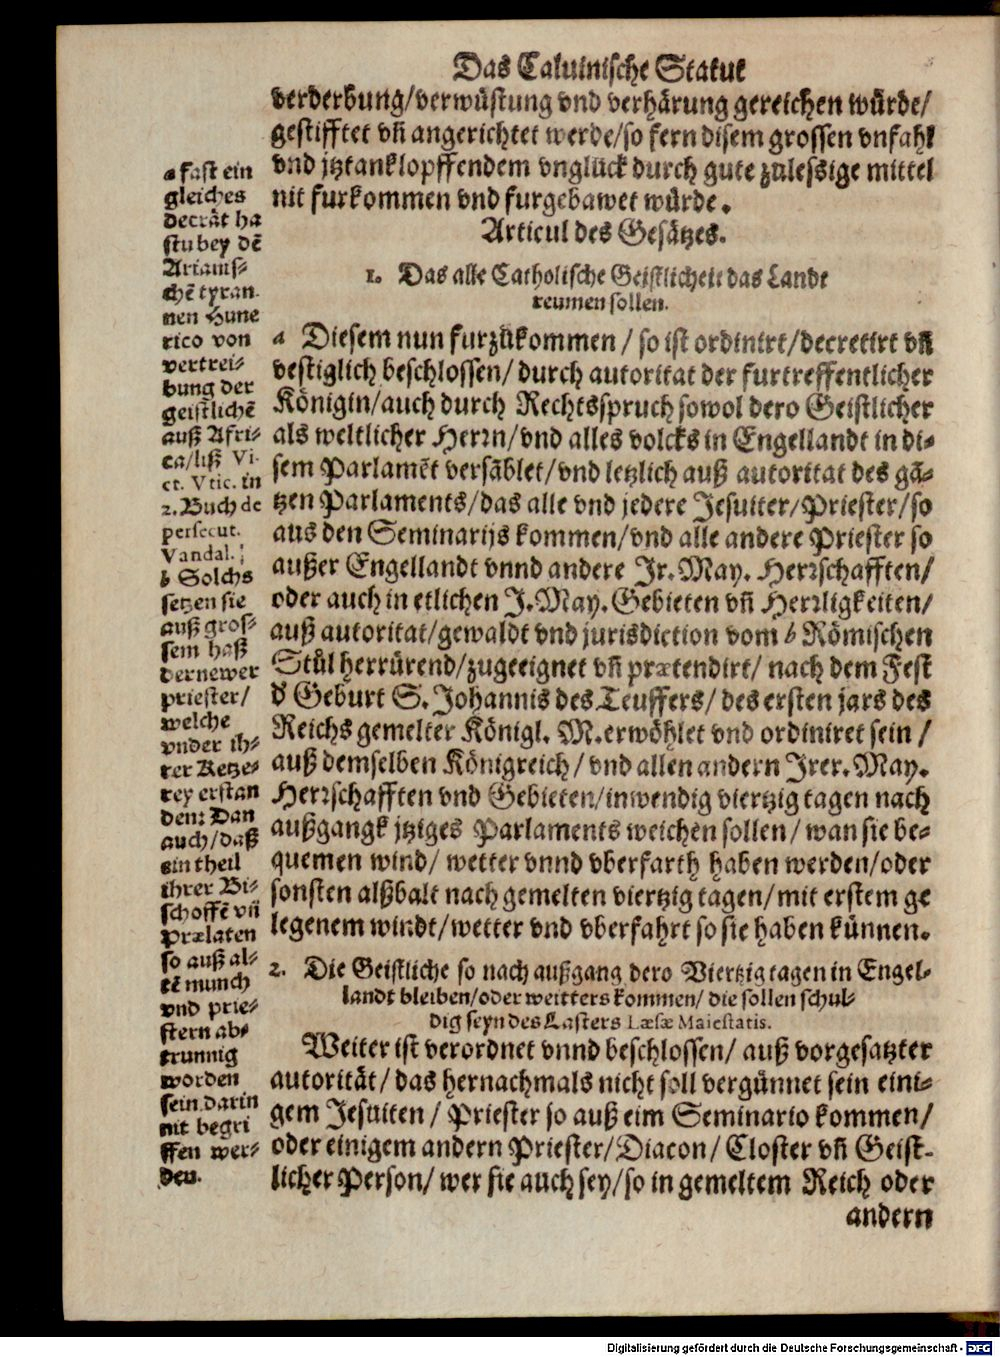 Das Caluinische Statut
verderbung/verwüstung vnd verhärung gereichen würde/
gestifftet vñ angerichtet werde/so fern disem grossen vnfahl
vnd jtztanklopffendem vnglück durch gute zulessige mittel
nit furkommen vnd furgebawet würde.
Articul des Gesätzes.
1. Das alle Catholische Geistlicheit das Landt
reumen sollen.
a Diesem nun furzůkommen / so ist ordinirt/decretirt vñ
vestiglich beschlossen/ durch autoritat der furtreffentlicher
Königin/auch durch Rechtsspruch sowol dero Geistlicher
als weltlicher Herrn/vnd alles volcks in Engellandt in di-
sem Parlamẽt versãblet/vnd letzlich auß autoritat des gã-
tzen Parlaments/das alle vnd jedere Jesuiter/Priester/so
aus den Seminarijs kommen/vnd alle andere Priester so
außer Engellandt vnnd andere Jr. May. Herrschafften/
oder auch in etlichen J. May. Gebieten vñ Herrligkeiten/
auß autoritat/gewaldt vnd jurisdiction vom b Römischen
Stůl herrürend/zugeeignet vñ prætendirt/ nach dem Fest
d' Geburt S. Johannis des Teuffers/ des ersten jars des
Reichs gemelter Königl. M. erwöhlet vnd ordiniret sein /
auß demselben Königreich / vnd allen andern Jrer. May.
Herrschafften vnd Gebieten/inwendig viertzig tagen nach
außgangk jtziges Parlaments weichen sollen/ wan sie be-
quemen wind/ wetter vnnd vberfarth haben werden/oder
sonsten alßbalt nach gemelten viertzig tagen/ mit erstem ge
legenem windt/wetter vnd vberfahrt so sie haben künnen.
2. Die Geistliche so nach außgang dero Viertzig tagen in Engel-
landt bleiben/oder weitters kommen/ die sollen schul-
dig seyn des Lasters Læsæ Maiestatis.
Weiter ist verordnet vnnd beschlossen/ auß vorgesatzter
autorität/ das hernachmals nicht soll vergünnet sein eini-
gem Jesuiten / Priester so auß eim Seminario kommen/
oder einigem andern Priester/Diacon/ Closter vñ Geist-
licher Person/ wer sie auch sey/so in gemeltem Reich oder
andern
a fast ein
gleiches
decrät ha
stu bey dẽ
Arianis-
chẽ tyran
nen Hune
rico von
vertrei-
bung der
geistlichẽ
auß Afri-
ca/liß Vi
ct. Vtic. in
2. Buch de
persecut.
Vandal.
b Solchs
setzen sie
auß gros-
sem haß
der newer
priester/
welche
vnder ih-
rer Ketze-
rey erstan
den: Dan
auch/daß
ein theil
ihrer Bi-
schoffẽ vñ
Prælaten
so auß al-
tẽ munch
vnd prie-
stern ab-
trunnig
worden
sein darin
nit begri
ffen wer-
den.
Digitalisierung gefördert durch die Deutsche Forschungsgemeinschaft - DFG